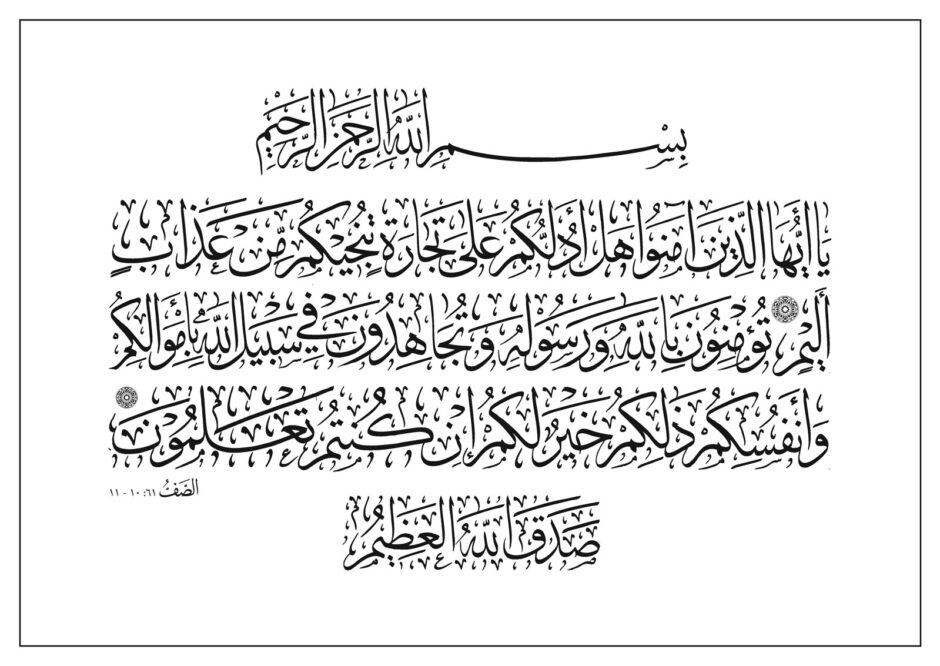 بِسْمِ اللَّهِ الرَّحْمَنِ الرَّحِيمِ
يَا أَيُّهَا الَّذِينَ آمَنُوا هَلْ أَدُلُّكُمْ عَلَى تِجَارَةٍ تُنْجِيكُمْ مِّنْ عَذَابٍ
أَلِيمٍ تُؤْمِنُونَ بِاللَّهِ وَرَسُولِهِ وَتُجَاهِدُونَ فِي سَبِيلِ اللَّهِ بِأَمْوَالِكُمْ
وَأَنْفُسِكُمْ ذَلِكُمْ خَيْرٌ لَكُمْ إِنْ كُنْتُمْ تَعْلَمُونَ
الصَّفّ ٦١: ١٠ - ١١
صَدَقَ اللَّهُ الْعَظِيمُ